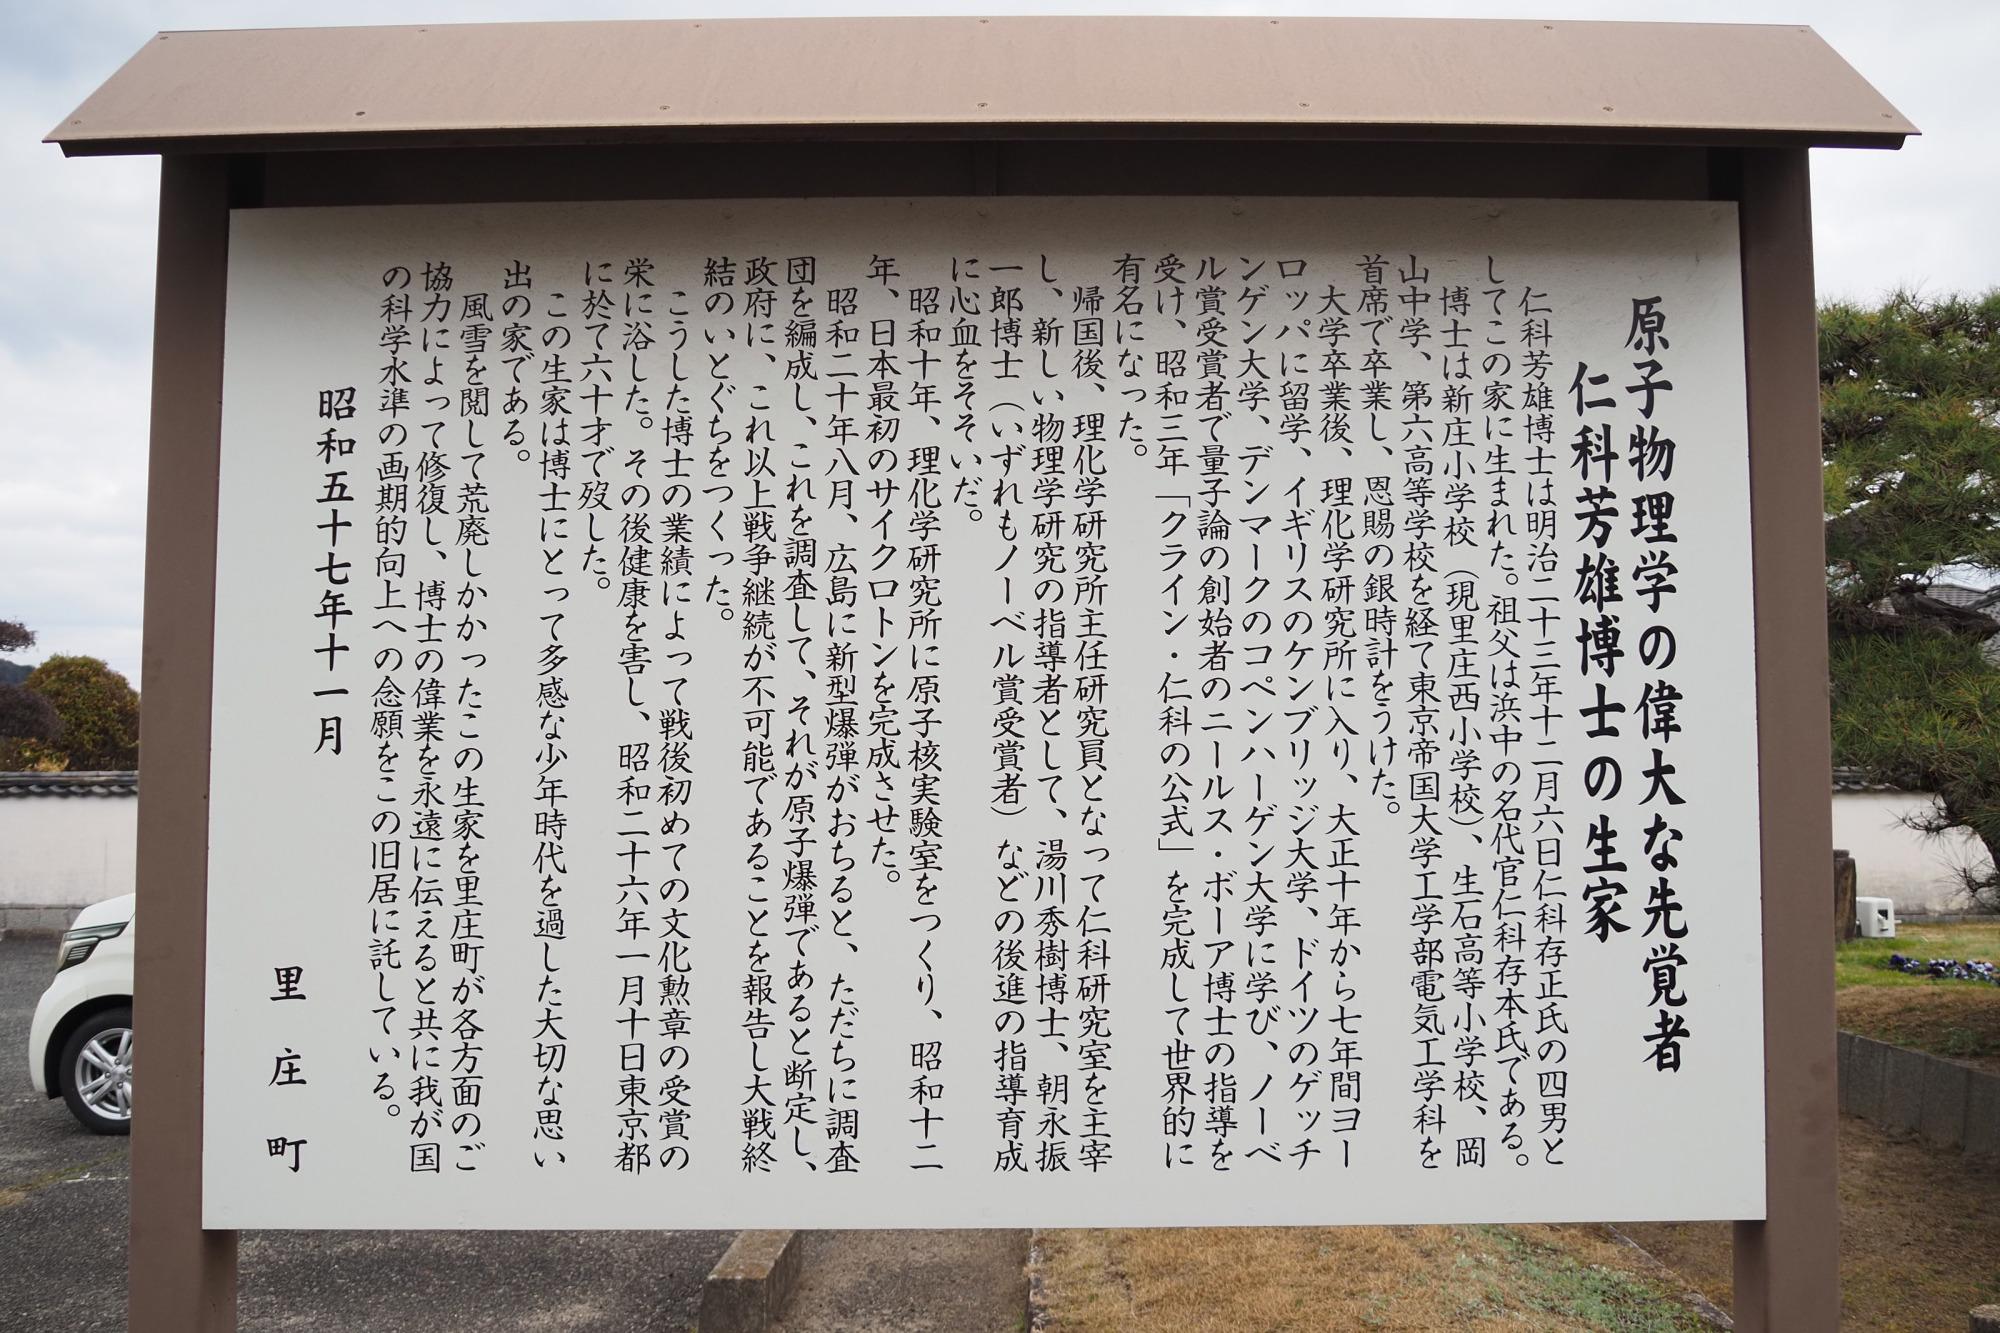 原子物理学の偉大な先覚者
仁科芳雄博士の生家
仁科芳雄博士は明治二十三年十二月六日仁科存正氏の四男と
してこの家に生まれた。祖父は浜中の名代官仁科存本氏である。
博士は新庄小学校（現里庄西小学校）、生石高等小学校、岡
山中学、第六高等学校を経て東京帝国大学工学部電気工学科を
首席で卒業し、恩賜の銀時計をうけた。
大学卒業後、理化学研究所に入り、大正十年から七年間ヨー
ロッパに留学、イギリスのケンブリッジ大学、ドイツのゲッチ
ンゲン大学、デンマークのコペンハーゲン大学に学び、ノーベ
ル賞受賞者で量子論の創始者のニールス・ボーア博士の指導を
受け、昭和三年「クライン・仁科の公式」を完成して世界的に
有名になった。
帰国後、理化学研究所主任研究員となって仁科研究室を主宰
し、新しい物理学研究の指導者として、湯川秀樹博士、朝永振
一郎博士（いずれもノーベル賞受賞者）などの後進の指導育成
に心血をそそいだ。
昭和十年、理化学研究所に原子核実験室をつくり、昭和十二
年、日本最初のサイクロトンを完成させた。
昭和二十年八月、広島に新型爆弾がおちると、ただちに調査
団を編成し、これを調査して、それが原子爆弾であると断定し、
政府に、これ以上戦争継続が不可能であることを報告し大戦終
結のいとぐちをつくった。
こうした博士の業績によって戦後初めての文化勲章の受賞の
栄に浴した。その後健康を害し、昭和二十六年一月十日東京都
に於て六十才で歿した。
この生家は博士にとって多感な少年時代を過した大切な思い
出の家である。
風雪を閲して荒廃しかかったこの生家を里庄町が各方面のご
協力によって修復し、博士の偉業を永遠に伝えると共に我が国
の科学水準の画期的向上への念願をこの旧居に託している。
昭和五十七年十一月
里庄町